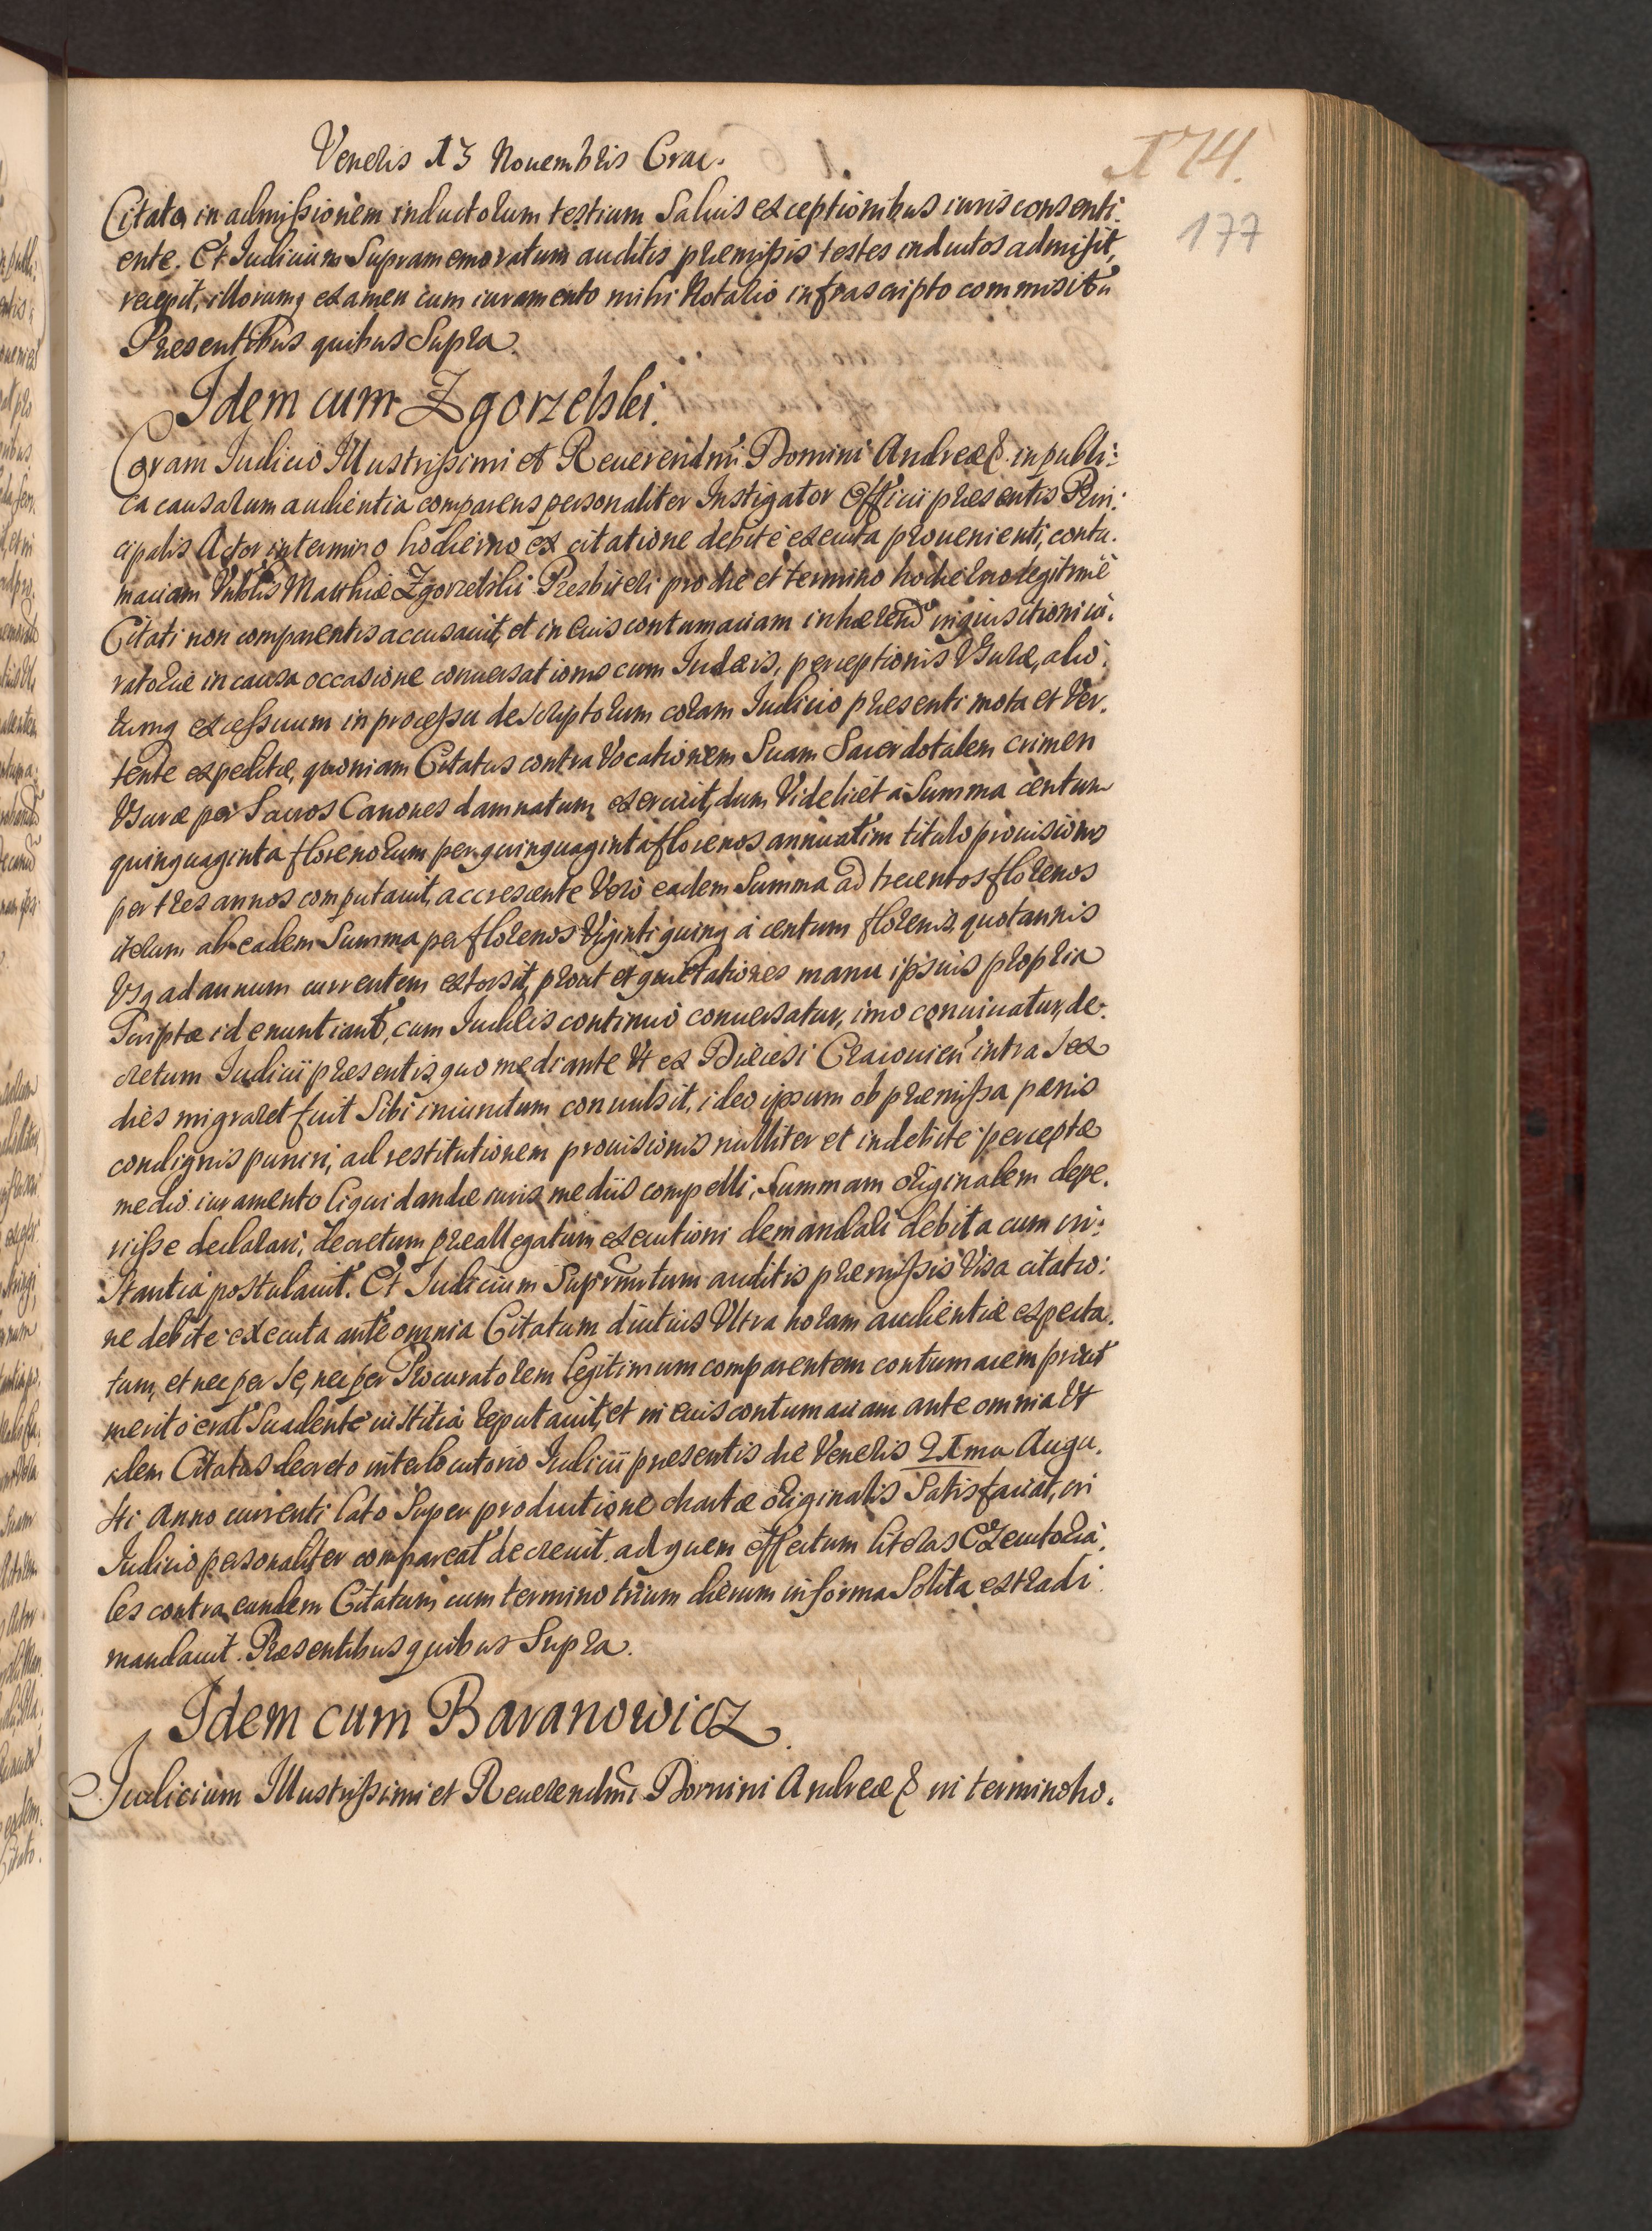 Veneris 13 Nouembris Crac.
174.
177
Citata in admißionem inductorum testium Saluis exceptionibus iuris consenti:
ente. Et Iudicium Supramemoratum auditis præmißis testes inductos admisit,
recepit, illorumq examen cum iuramento mihi Notario infrascripto commisit
Præsentibus quibus Supra.
Idem cum Zgorzelski.
Coram Iudicio Illustrißimi et Reuerendmi Domini Andreæ & in publi:
ca causarum audientia comparens personaliter Instigator Officii præsentis Prin:
cipalis Actor in termino hodierno ex citatione debite executa prouenienti, contu:
maciam Vnblis Matthiæ Zgorzelski Præsbiteri pro die et termino hodierno legitime
Citati non comparentis accusauit, et in eius contumaciam inhærend inquisitioni iu:
ratoriæ in causa occasione conuersationis cum Iudæis, perceptionis Vsuræ, alio:
rumq excessuum in processu descriptorum coram Iudicio præsenti mota et Ver:
tente expeditæ, quoniam Citatus contra Vocationem Suam Sacerdotalem crimen
Vsuræ per Sacros Canones damnatum exercuit, dum Videlicet a Summa centum
quinquaginta florenorum per quinquaginta florenos annuatim titulo prouisionis
per tres annos computauit, accrescente Vero eadem Summa ad trecentos florenos
iterum ab eadem Summa per florenos Viginti quinq à centum florenis, quotannis
Vsq ad annum currentem extorsit, prout et quietationes manu ipsius propria
Scriptæ id enuntiant, cum Iudæis continuò conuersatur, imo conuiuatur, de:
cretum Iudicii præsentis, quo mediante Vt ex Diæcesi Cracouien intra Sex
dies migraret fuit Sibi iniunctum conuulsit, ideo ipsum ob præmißa pænis
condignis puniri, ad restitutionem prouisionis nulliter et indebite perceptæ
medio iuramento liquidandæ iuris mediis compelli, Summam originalem depe:
riiße declarari, decretum præallegatum executioni demandari debita cum in:
stantia postulauit. Et Iudicium Suprmtum auditis præmißis Visa citatio:
ne debite executa ante omnia Citatum diutius Vltra horam audientiæ expecta:
tum, et nec per Se, nec per Procuratorem legitimum comparentem contumacem prout
merito erat Suadente iustitia reputauit, et in eius contumaciam ante omnia Vt
idem Citatus decreto interlocutorio Iudicii præsentis die Veneris 21ma Augu:
sti Anno currenti lato Super productione chartæ originalis Satisfaciat, in
Iudicio personaliter compareat decreuit. ad quem effectum literas Executoria:
les contra eundem Citatum cum termino trium dierum in forma Solita extradi
mandauit. Præsentibus quibus Supra.
Idem cum Baranowicz.
Iudicium Illustrißimi et Reuerendmi Domini Andreæ & in termino ho: